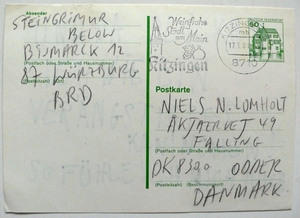 Absender
STEINGRIMUR
BELOW
BISMARCK 12
(Postfach oder Straße und Hausnummer)
87 WÜRZBURG
(Postleitzahl) (Ort)
BRD
Weinfrohe
Stadt
am Main
Kitzingen
KITZINGEN
mb
8710
60
DEUTSCHE BUNDESPOST
NIELS N. LOMHOLT
AKTJERVET 49
FALLING
(Postfach oder Straße und Hausnummer)
DK 8300 ODDER
(Postleitzahl) (Bestimmungsort)
DANMARK